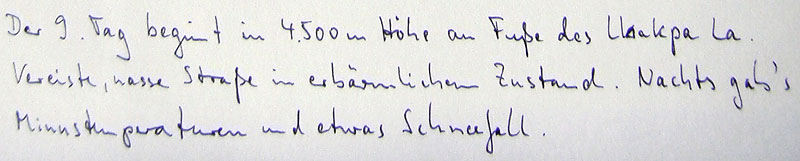 Der 9. Tag beginnt in 4.500 m Höhe am Fuße des Lhakpa La.
Vereiste, nasse Straße in erbärmlichem Zustand. Nachts gab's
Minustemperaturen und etwas Schneefall.